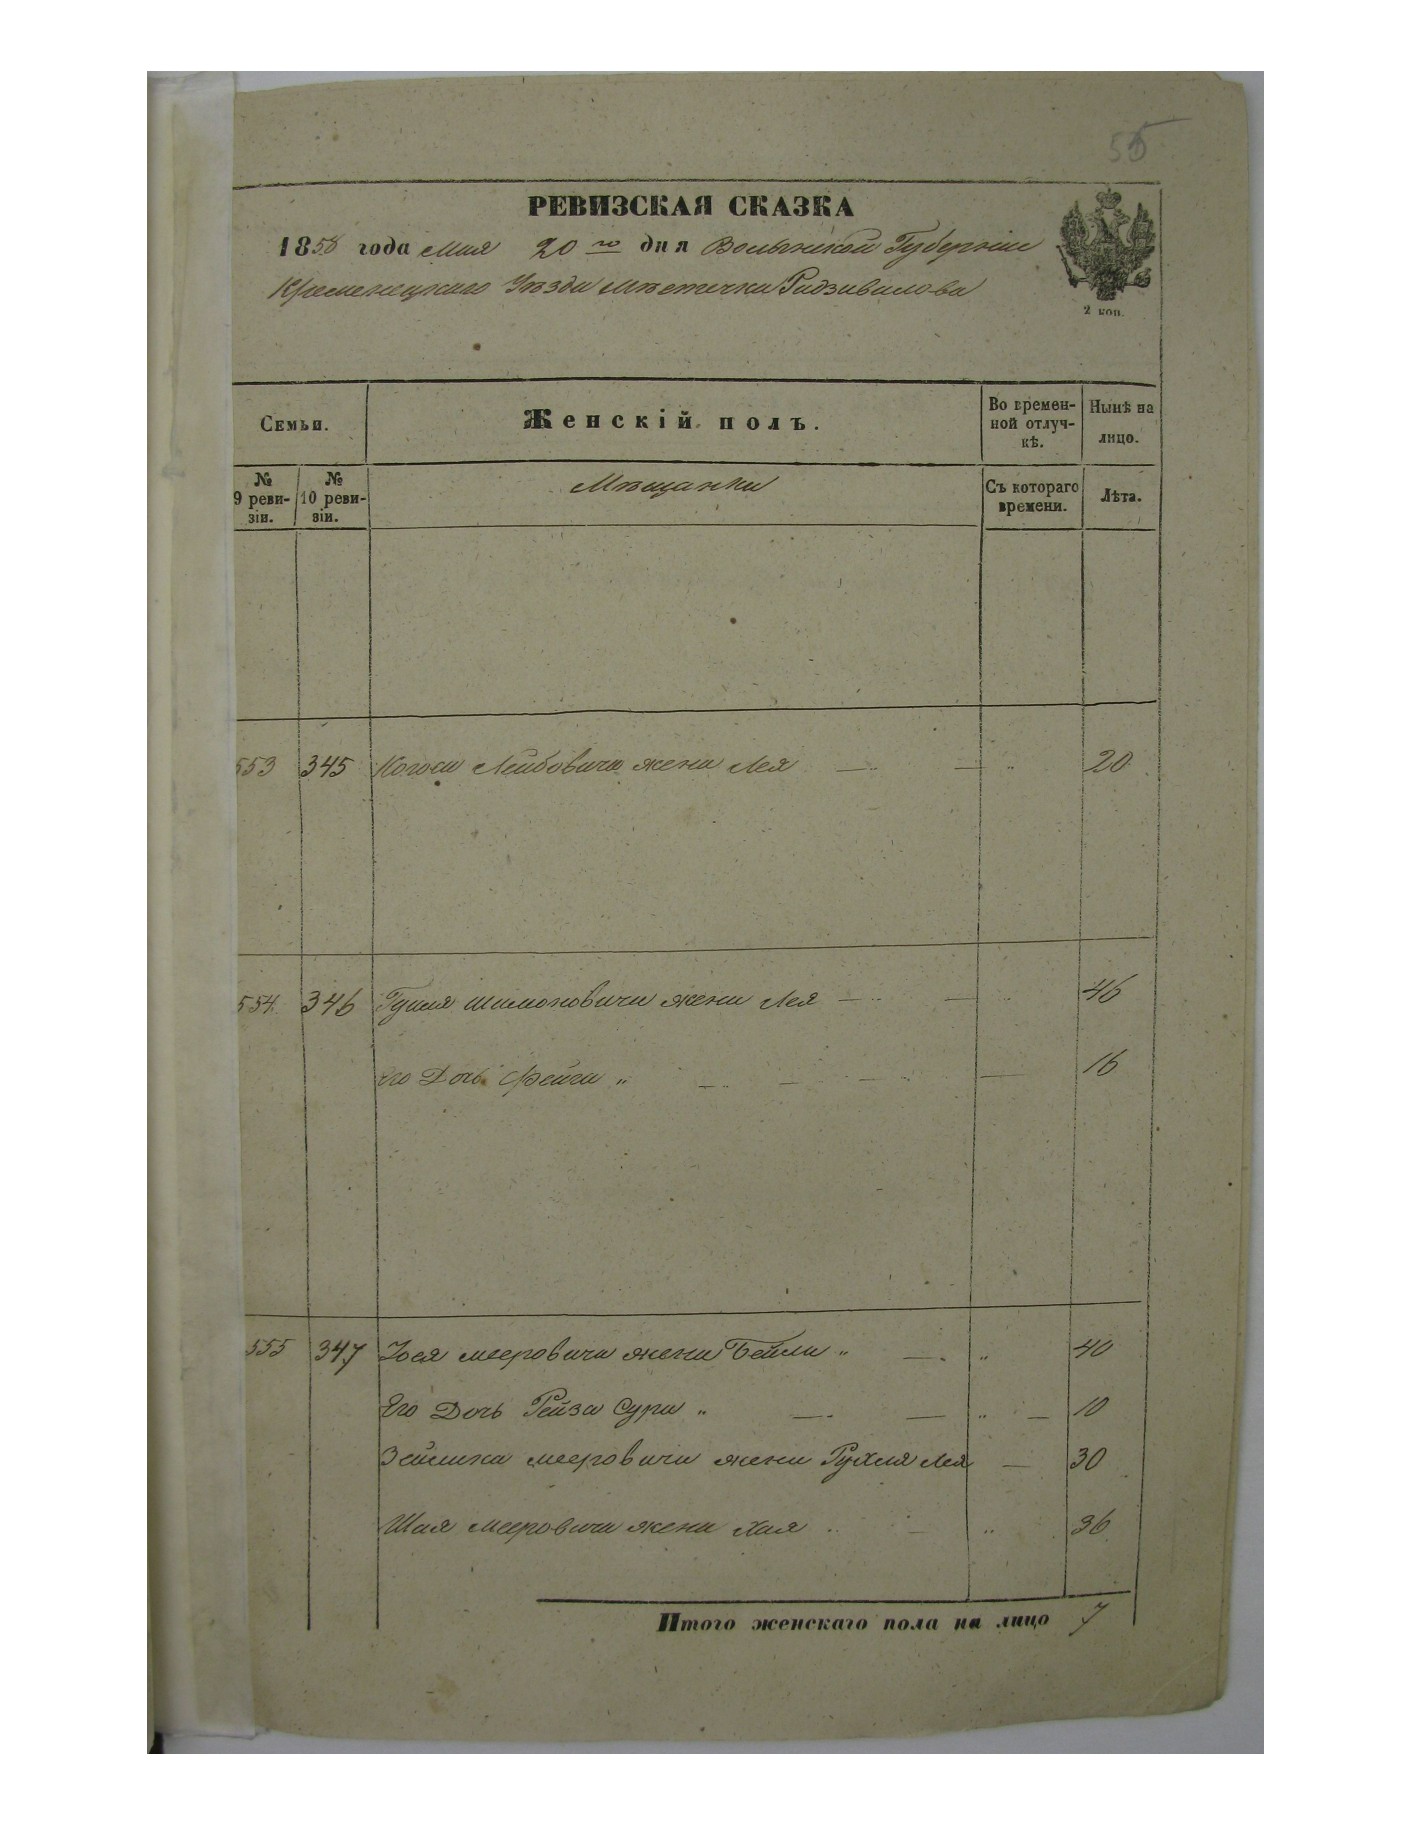 55
РЕВИЗСКАЯ СКАЗКА
1858 года Мая 20го дня Волынской Губерніи
Кременецкаго Уѣзда Мѣстечка Радзивилова
2 коп.
Семьи.
Женскій полъ.
Во времен-
ной отлуч-
кѣ.
Нынѣ на
лицо.
№
9 реви-
зіи.
№
10 реви-
зіи.
Мѣщанки
Съ котораго
времени.
Лѣта.
553 345 Лейбовича жена Лея 20
554 346 Шимоновича жена Лея 46
Его Дочь Фейга " 16
555 347 Іося Мееровича жена Бейла " 40
Его Дочь Рейза Сура " 10
Зейлика Мееровича жена Рухля Лея 30
Шая Мееровича жена Хая 36
Итого женскаго пола на лицо 7